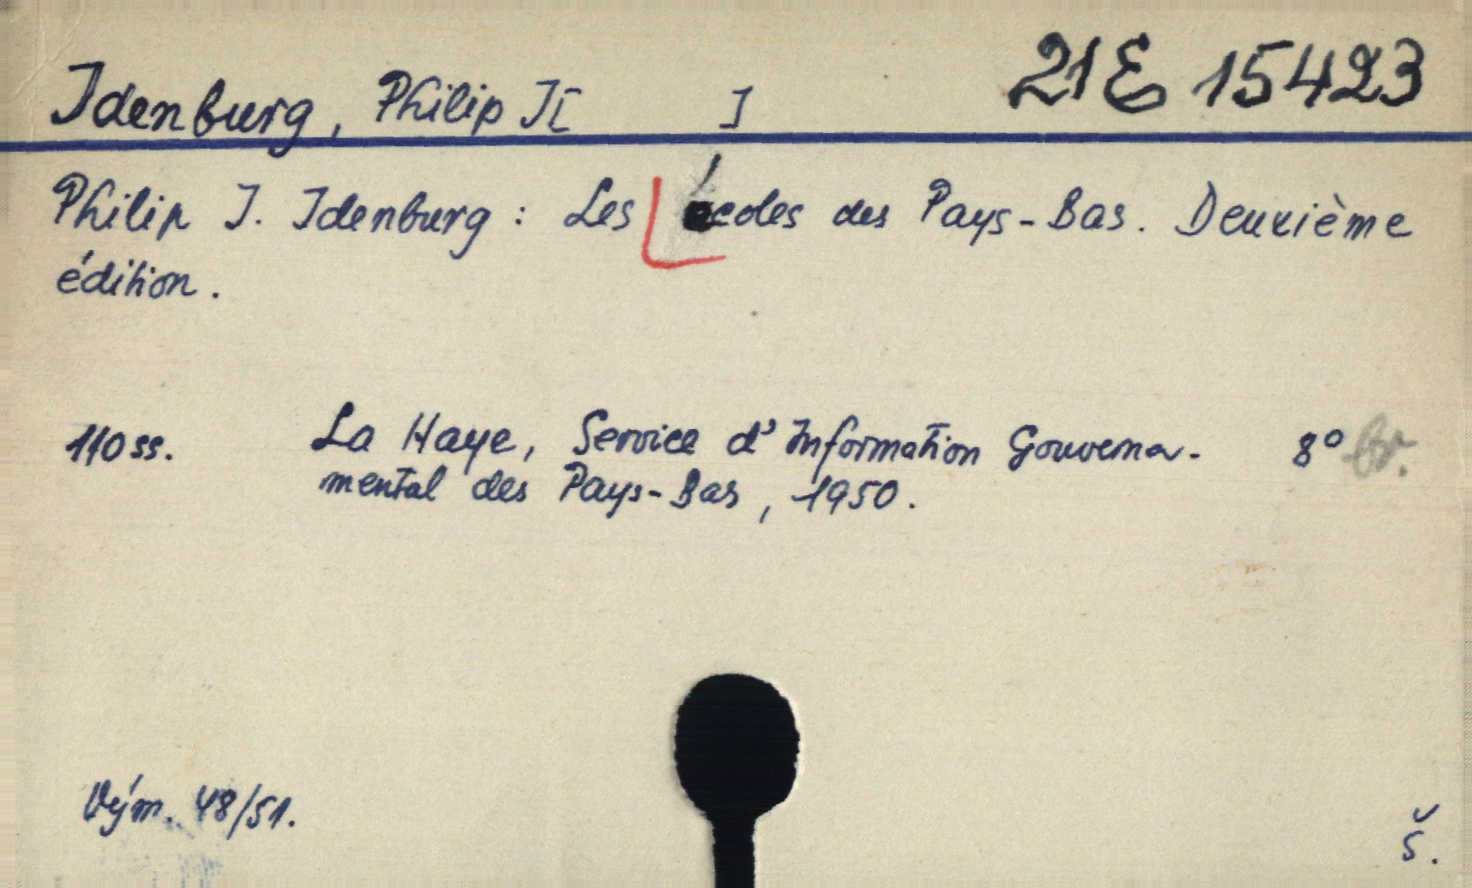 21 E 15423
Idenburg, Philip J[ ]
Philip J. Idenburg : Les écoles des Pays-Bas. Deuxième
édition.
110 ss. La Haye, Service d'Information Gouverna- 8° br.
mental des Pays-Bas, 1950.
Vým. 48/51.
š.